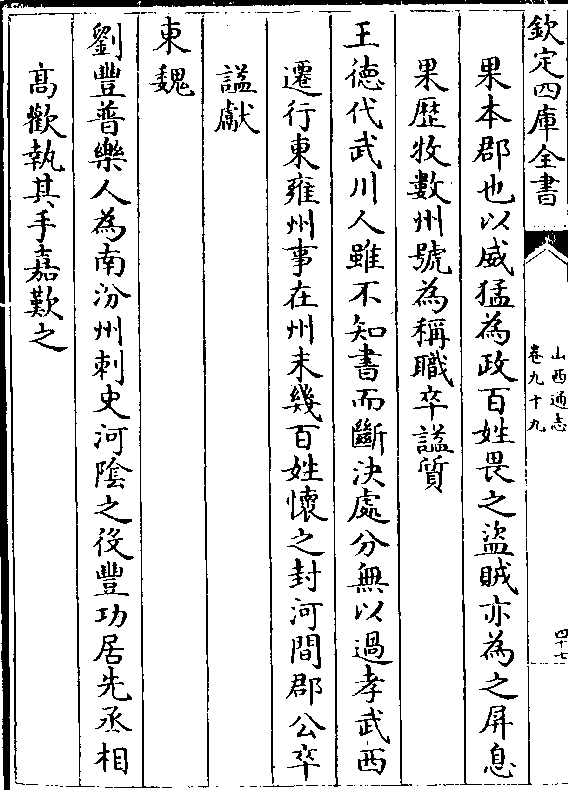 欽定四庫全書
山西通志
卷九十九
四十七
果本郡也以威猛為政百姓畏之盜賊亦為之屏息
果歴牧數州號為稱職卒諡質
王德代武川人雖不知書而斷決處分無以過孝武西
遷行東雍州事在州未幾百姓懷之封河間郡公卒
諡獻
東魏
劉豐普樂人為南汾州刺史河陰之役豐功居先丞相
高歡執其手嘉歎之